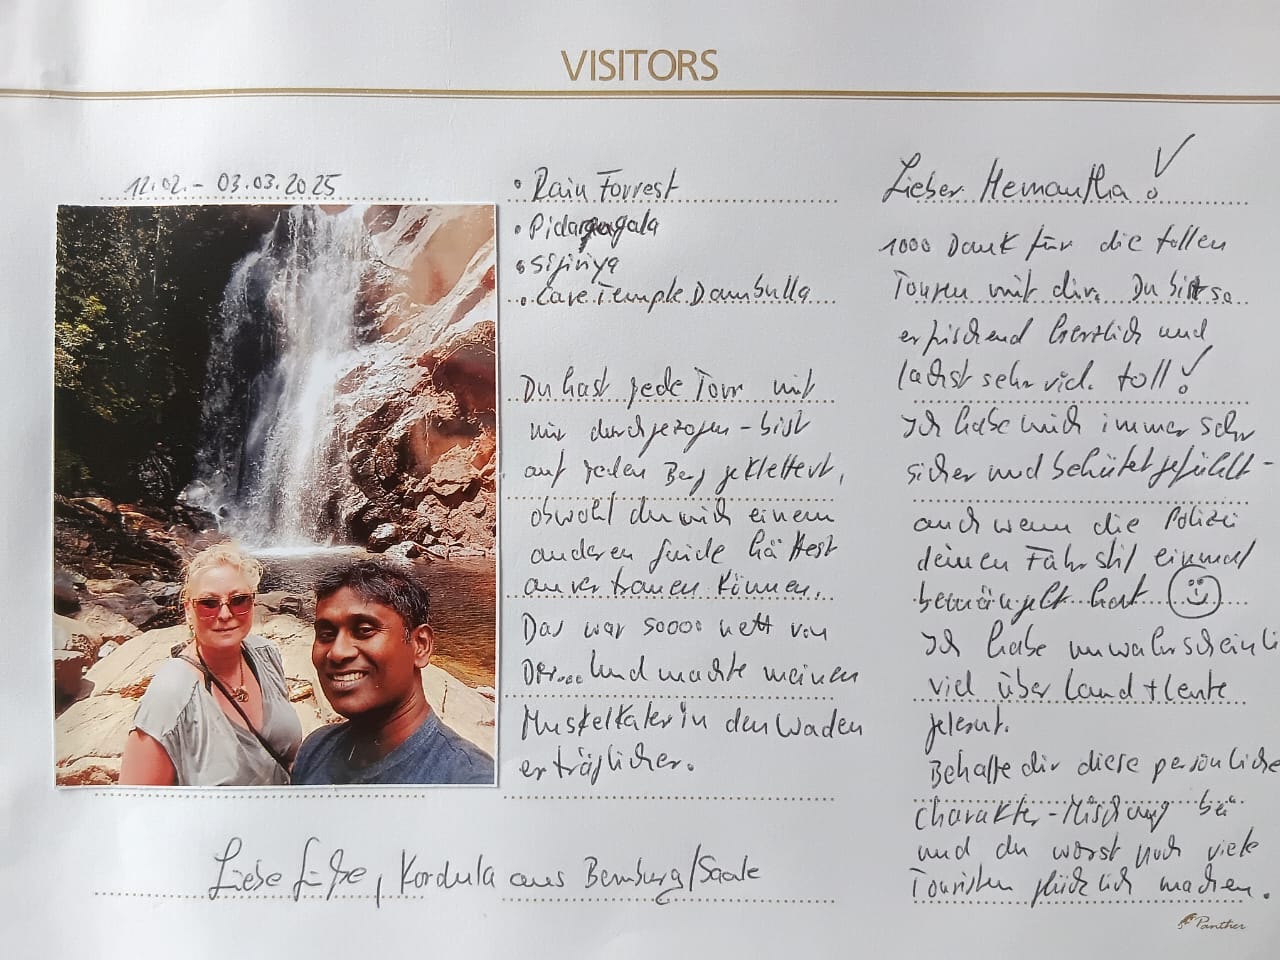 VISITORS
12.02. - 03.03.2025
• Rain Forrest
• Pidurangala
• Sigiriya
• Cave Temple Dambulla
Du hast jede Tour mit
mir durchgezogen - bist
auf jeden Berg geklettert,
obwohl du mich einem
anderen Guide hättest
anvertrauen können.
Das war soooo nett von
Dir... Und machte meinen
Muskelkater in den Waden
erträglicher.
Lieber Hemantha!
1000 Dank für die tollen
Touren mit dir. Du bist so
erfrischend herzlich und
lachst sehr viel. toll!
Ich habe mich immer sehr
sicher und behütet gefühlt -
auch wenn die Polizei
deinen Fahrstil einmal
bemängelt hat
Ich habe unwahrscheinli
viel über Land + Leute
gelernt.
Behalte dir diese persönliche
Charakter-Mischung bei
und du wirst noch viele
Touristen glücklich machen.
Liebe Grüße, Kordula aus Bernburg/Saale
Panther